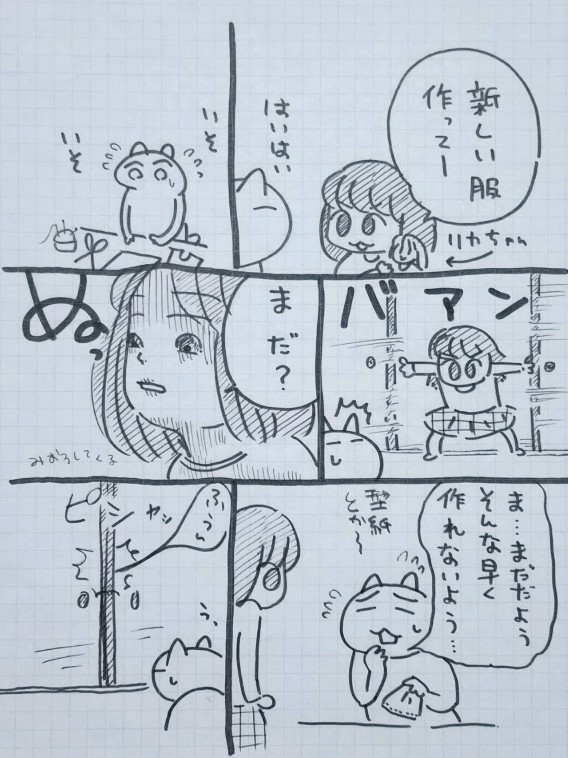 新しい服
作ってー
リカちゃん
はいはい
いそ
いそ
バァン
まだ?
ぬっ
みおろしてくる
ま…まだだよう
そんな早く
作れないよう…
型紙
とか〜
ふぅん
ピシャッ
う、